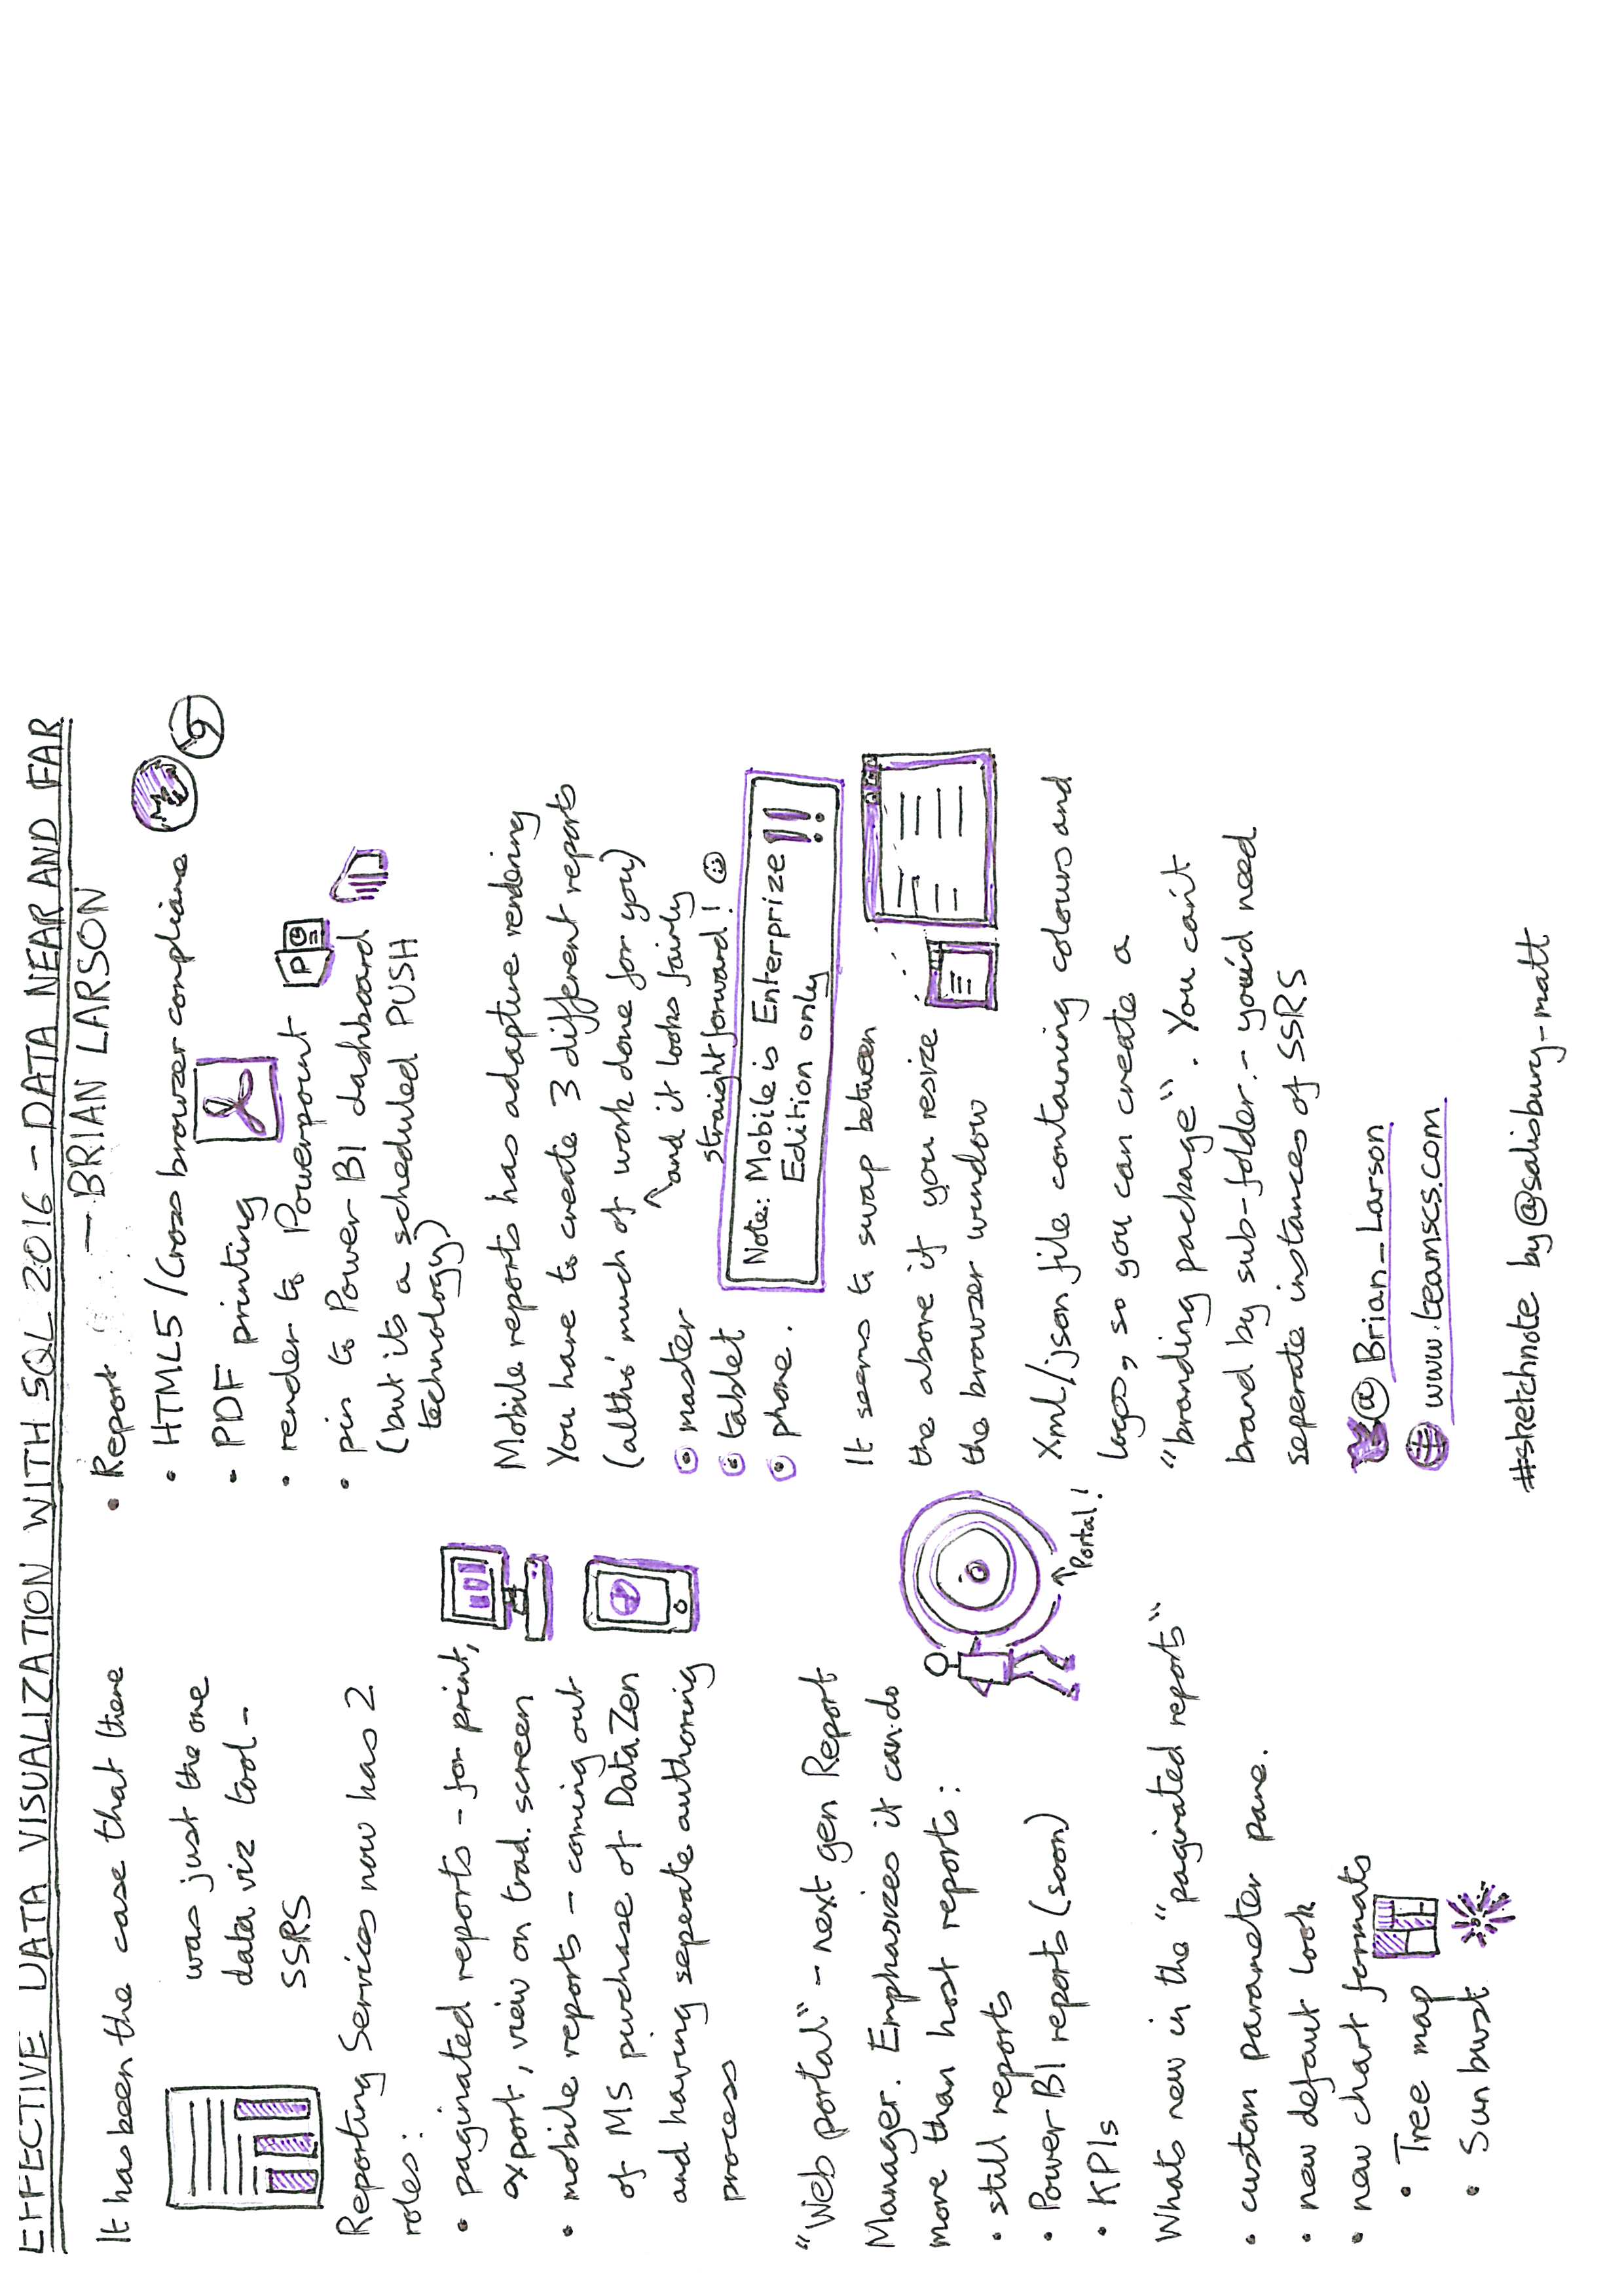 EFFECTIVE DATA VISUALIZATION WITH SQL 2016 - DATA NEAR AND FAR
- BRIAN LARSON
It has been the case that there
was just the one
data viz tool -
SSRS
Reporting Services now has 2
roles:
• paginated reports - for print,
export, view on trad. screen
• mobile reports - coming out
of MS purchase of DataZen
and having seperate authoring
process
"Web portal" - next gen Report
Manager. Emphasizes it can do
more than host reports:
• still reports
• Power BI reports (soon)
• KPIs
Portal!
Whats new in the "paginated reports"
• custom parameter pane.
• new defaut look
• new chart formats
• Tree map
• Sunburst
• Report
• HTML5 / Cross browzer compliance
• PDF printing
• render to Powerpoint
P
• pin to Power BI dashboard
(but its a scheduled PUSH
technology)
Mobile reports has adaptive rendering
You have to create 3 different reports
(altho' much of work done for you)
^and it looks fairly
straightforward!
master
tablet
phone.
Note: Mobile is Enterprize!!
Edition only
It seems to swap between
the above if you resize
the browzer window
Xml/json file containing colours and
logos, so you can create a
"branding package". You can't
brand by sub-folder.- you'd need
seperate instances of SSRS
@Brian_Larson
www.teamscs.com
#sketchnote by @salisbury-matt